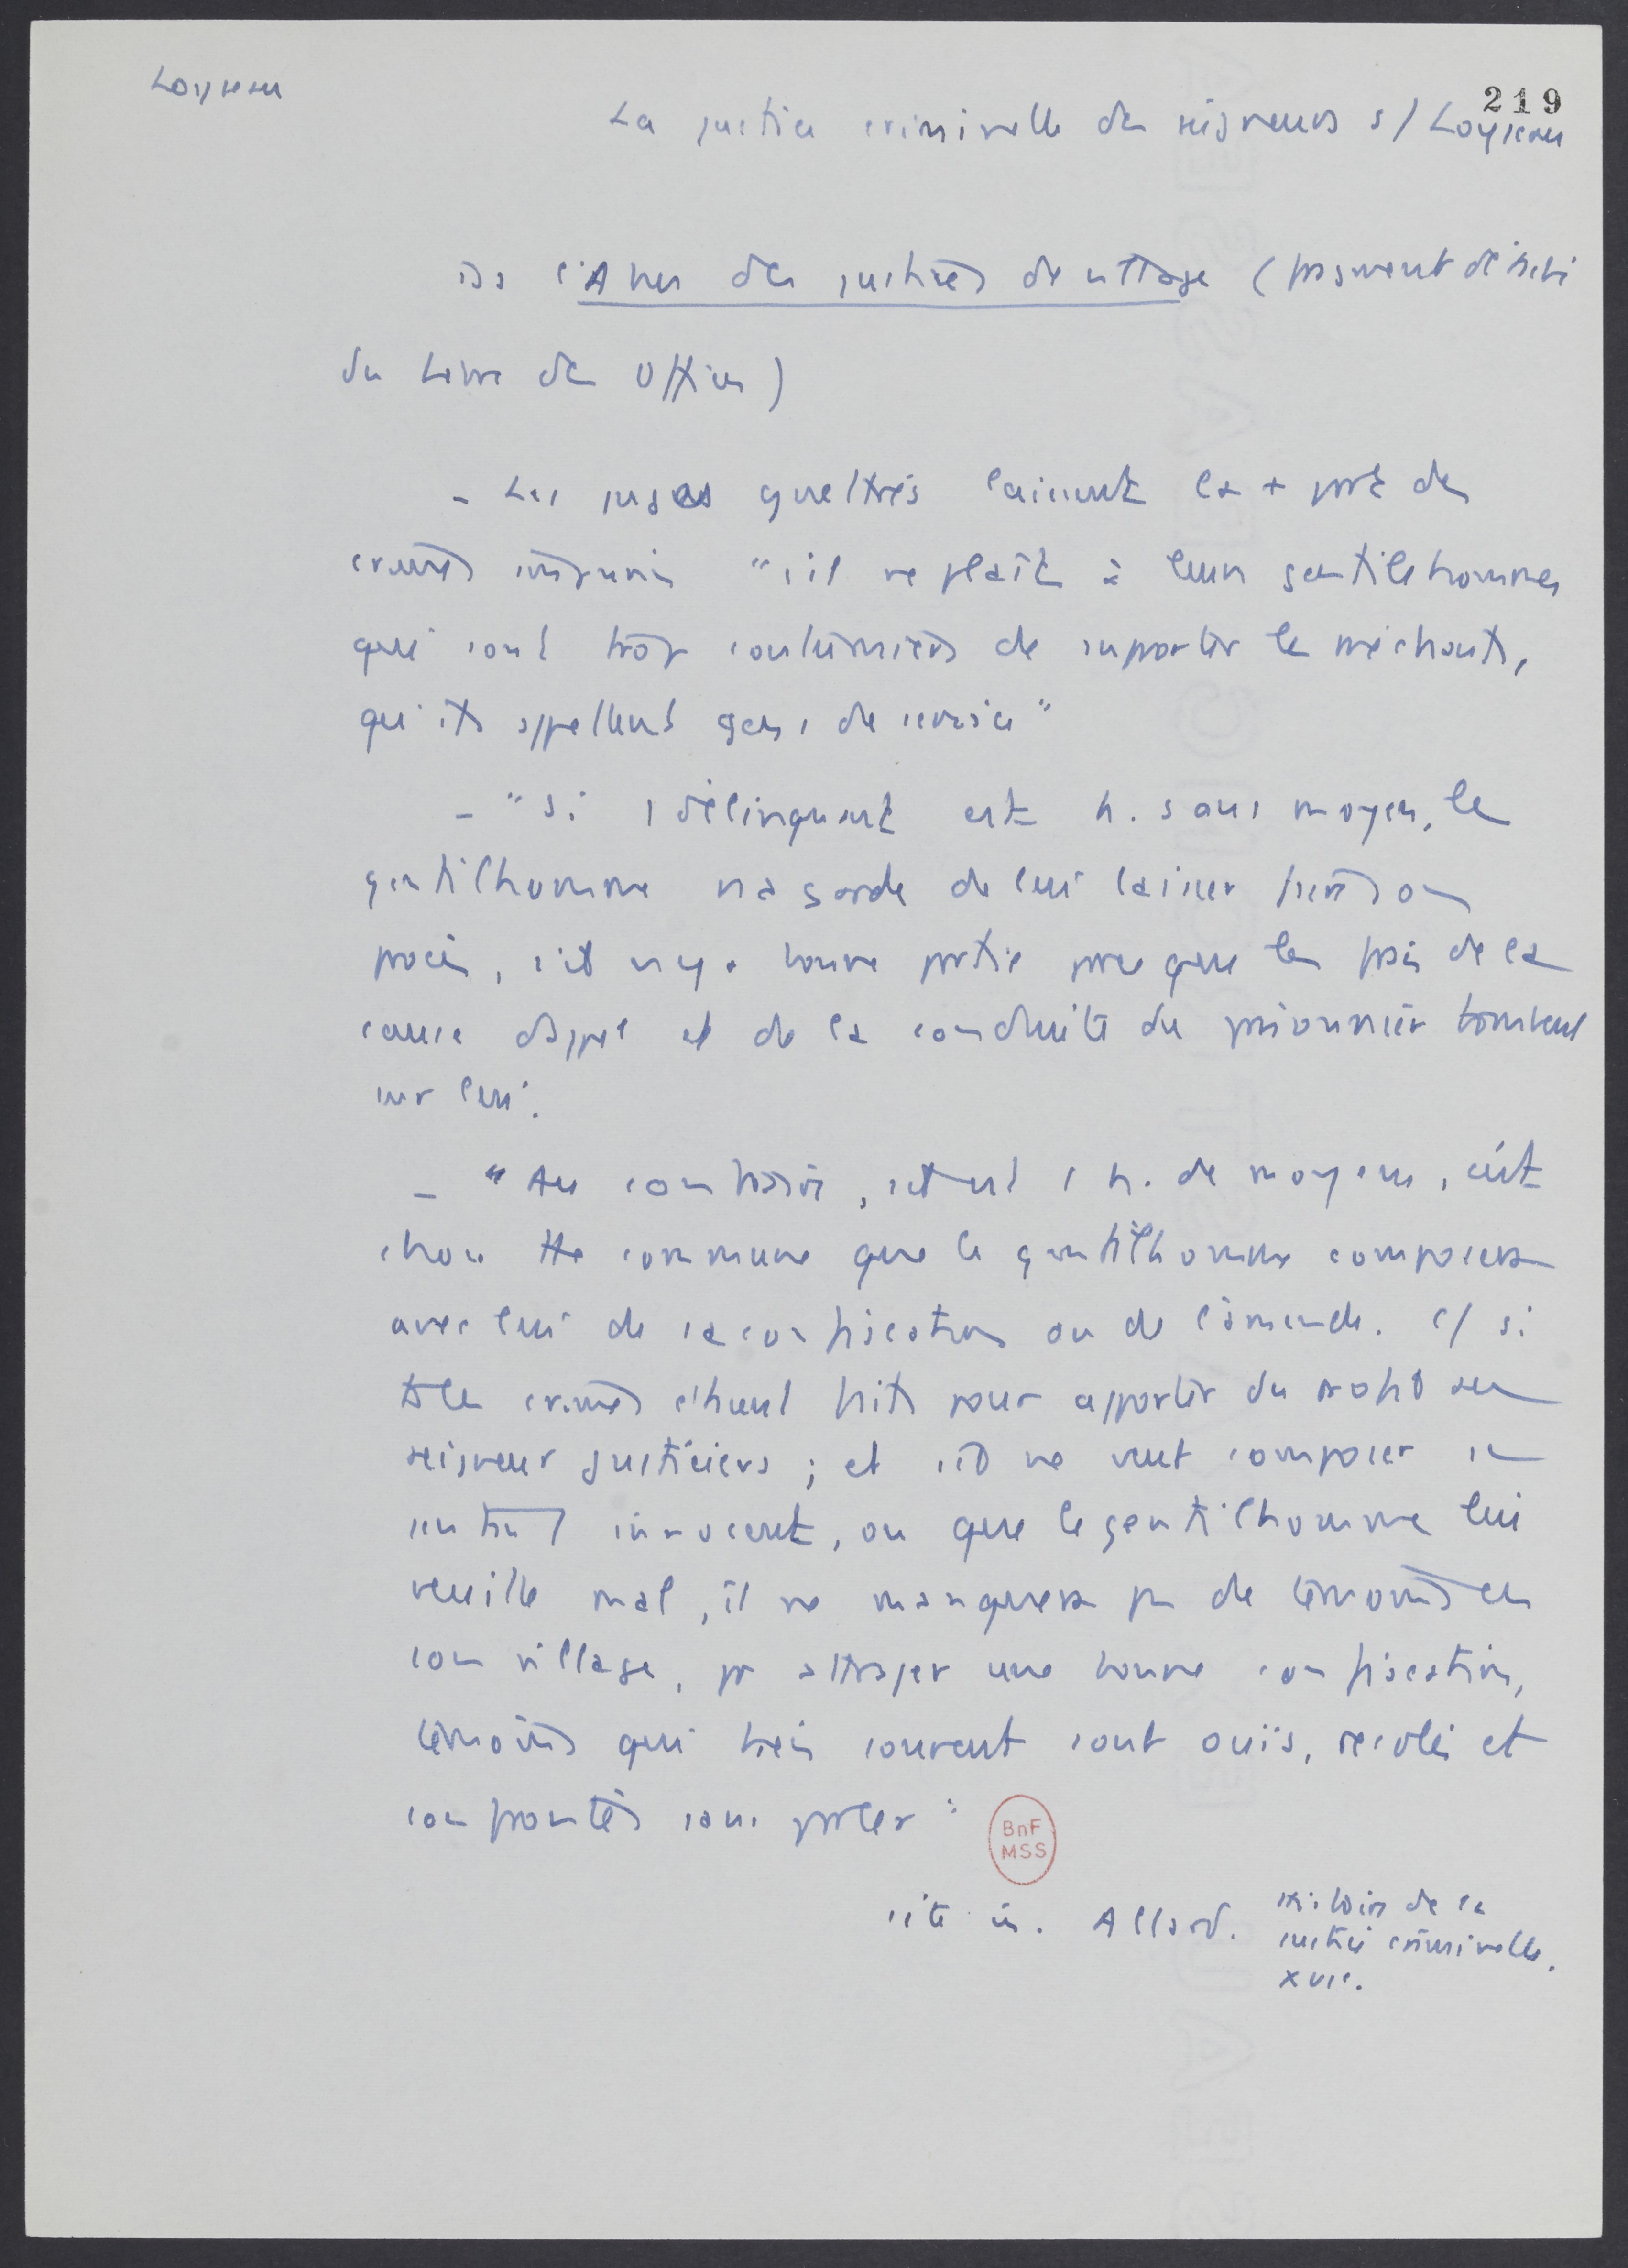 Loyseau
219
La justice criminelle des seigneurs s/ Loyseau
ds l'Abus des justices de village (fragment détaché
du Livre des Offices)
- Les juges guestrés laissent la + part des
crimes impunis "s'il ne plaît à leurs gentilshommes
qui sont trop coutumiers de suporter les méchants,
qu'ils appellent gens de service"
- "Si 1 délinquant est h. sans moyen, le
gentilhomme n'a garde de lui laisser faire son
procès, s'il n'y a bonne partie parce que les frais de la
cause d'appel et de la conduite du prisonnier tombent
sur lui.
- "Au contraire, s'il est 1 h. de moyens, c'est
chose tte commune que le gentilhomme composera
avec lui de sa confiscation ou de l'amende. C/ si
ts les crimes étaient faits pour apporter du profit aux
seigneurs justiciers ; et s'il ne veut composer se
sentant innocent, ou que le gentilhomme lui
veuille mal, il ne manquera pas de témoins en
son village, pr attraper une bonne confiscation,
témoins qui bien souvent sont ouïs, recolés et
confrontés sans parler"
BnF
MSS
cité in. Allard. Histoire de la
justice criminelle.
XVIe.